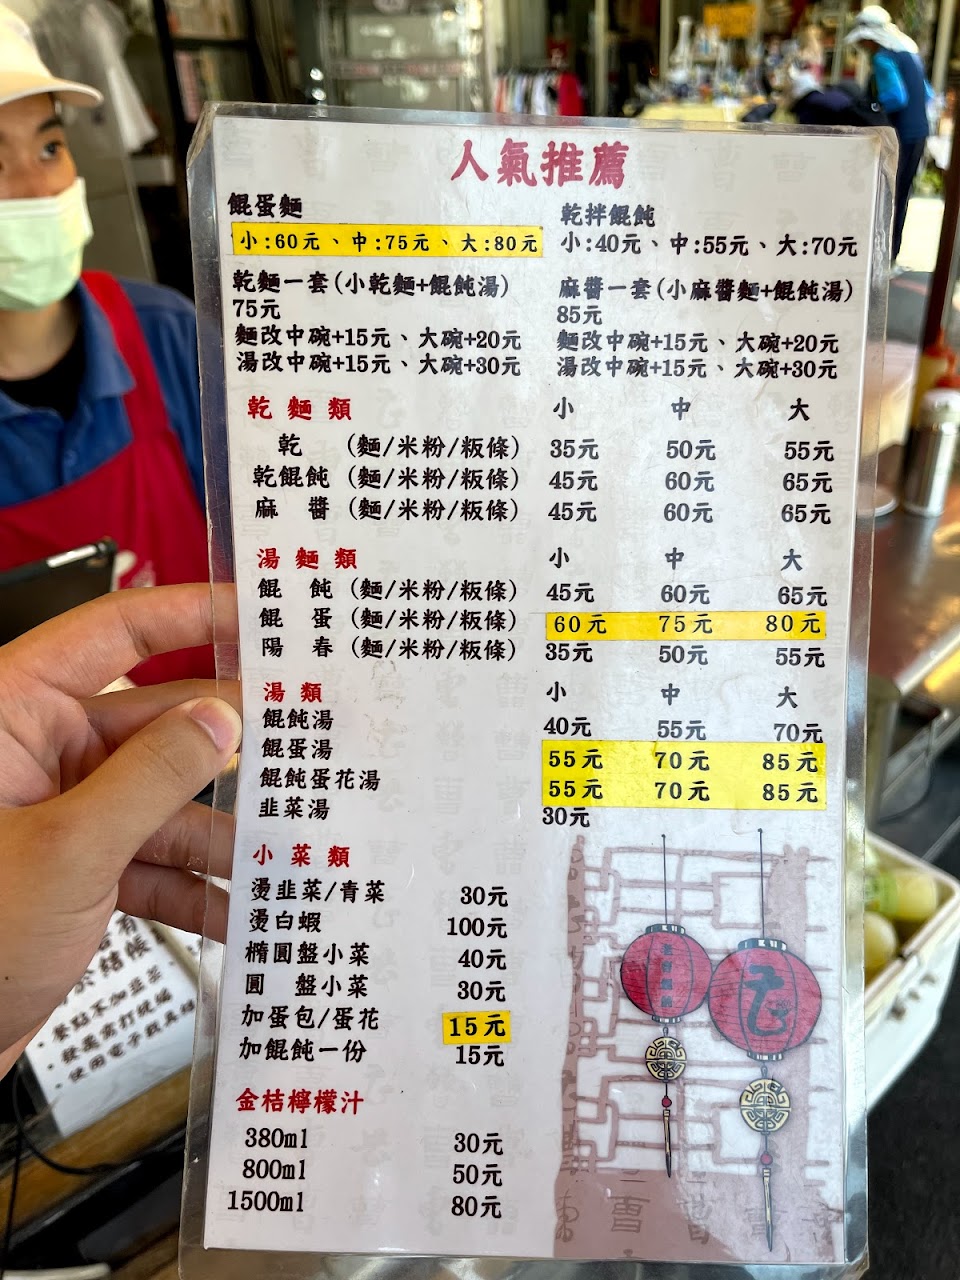 人氣推薦
餛蛋麵
小:60元、中:75元、大:80元
乾拌餛飩
小:40元、中:55元、大:70元
乾麵一套(小乾麵+餛飩湯)
75元
麵改中碗+15元、大碗+20元
湯改中碗+15元、大碗+30元
麻醬一套(小麻醬麵+餛飩湯)
85元
麵改中碗+15元、大碗+20元
湯改中碗+15元、大碗+30元
乾麵類 小 中 大
乾 (麵/米粉/粄條) 35元 50元 55元
乾餛飩 (麵/米粉/粄條) 45元 60元 65元
麻 醬 (麵/米粉/粄條) 45元 60元 65元
湯麵類 小 中 大
餛 飩 (麵/米粉/粄條) 45元 60元 65元
餛 蛋 (麵/米粉/粄條) 60元 75元 80元
陽 春 (麵/米粉/粄條) 35元 50元 55元
湯類 小 中 大
餛飩湯 40元 55元 70元
餛蛋湯 55元 70元 85元
餛飩蛋花湯 55元 70元 85元
韭菜湯 30元
小菜類
燙韭菜/青菜 30元
燙白蝦 100元
橢圓盤小菜 40元
圓 盤小菜 30元
加蛋包/蛋花 15元
加餛飩一份 15元
金桔檸檬汁
380ml 30元
800ml 50元
1500ml 80元